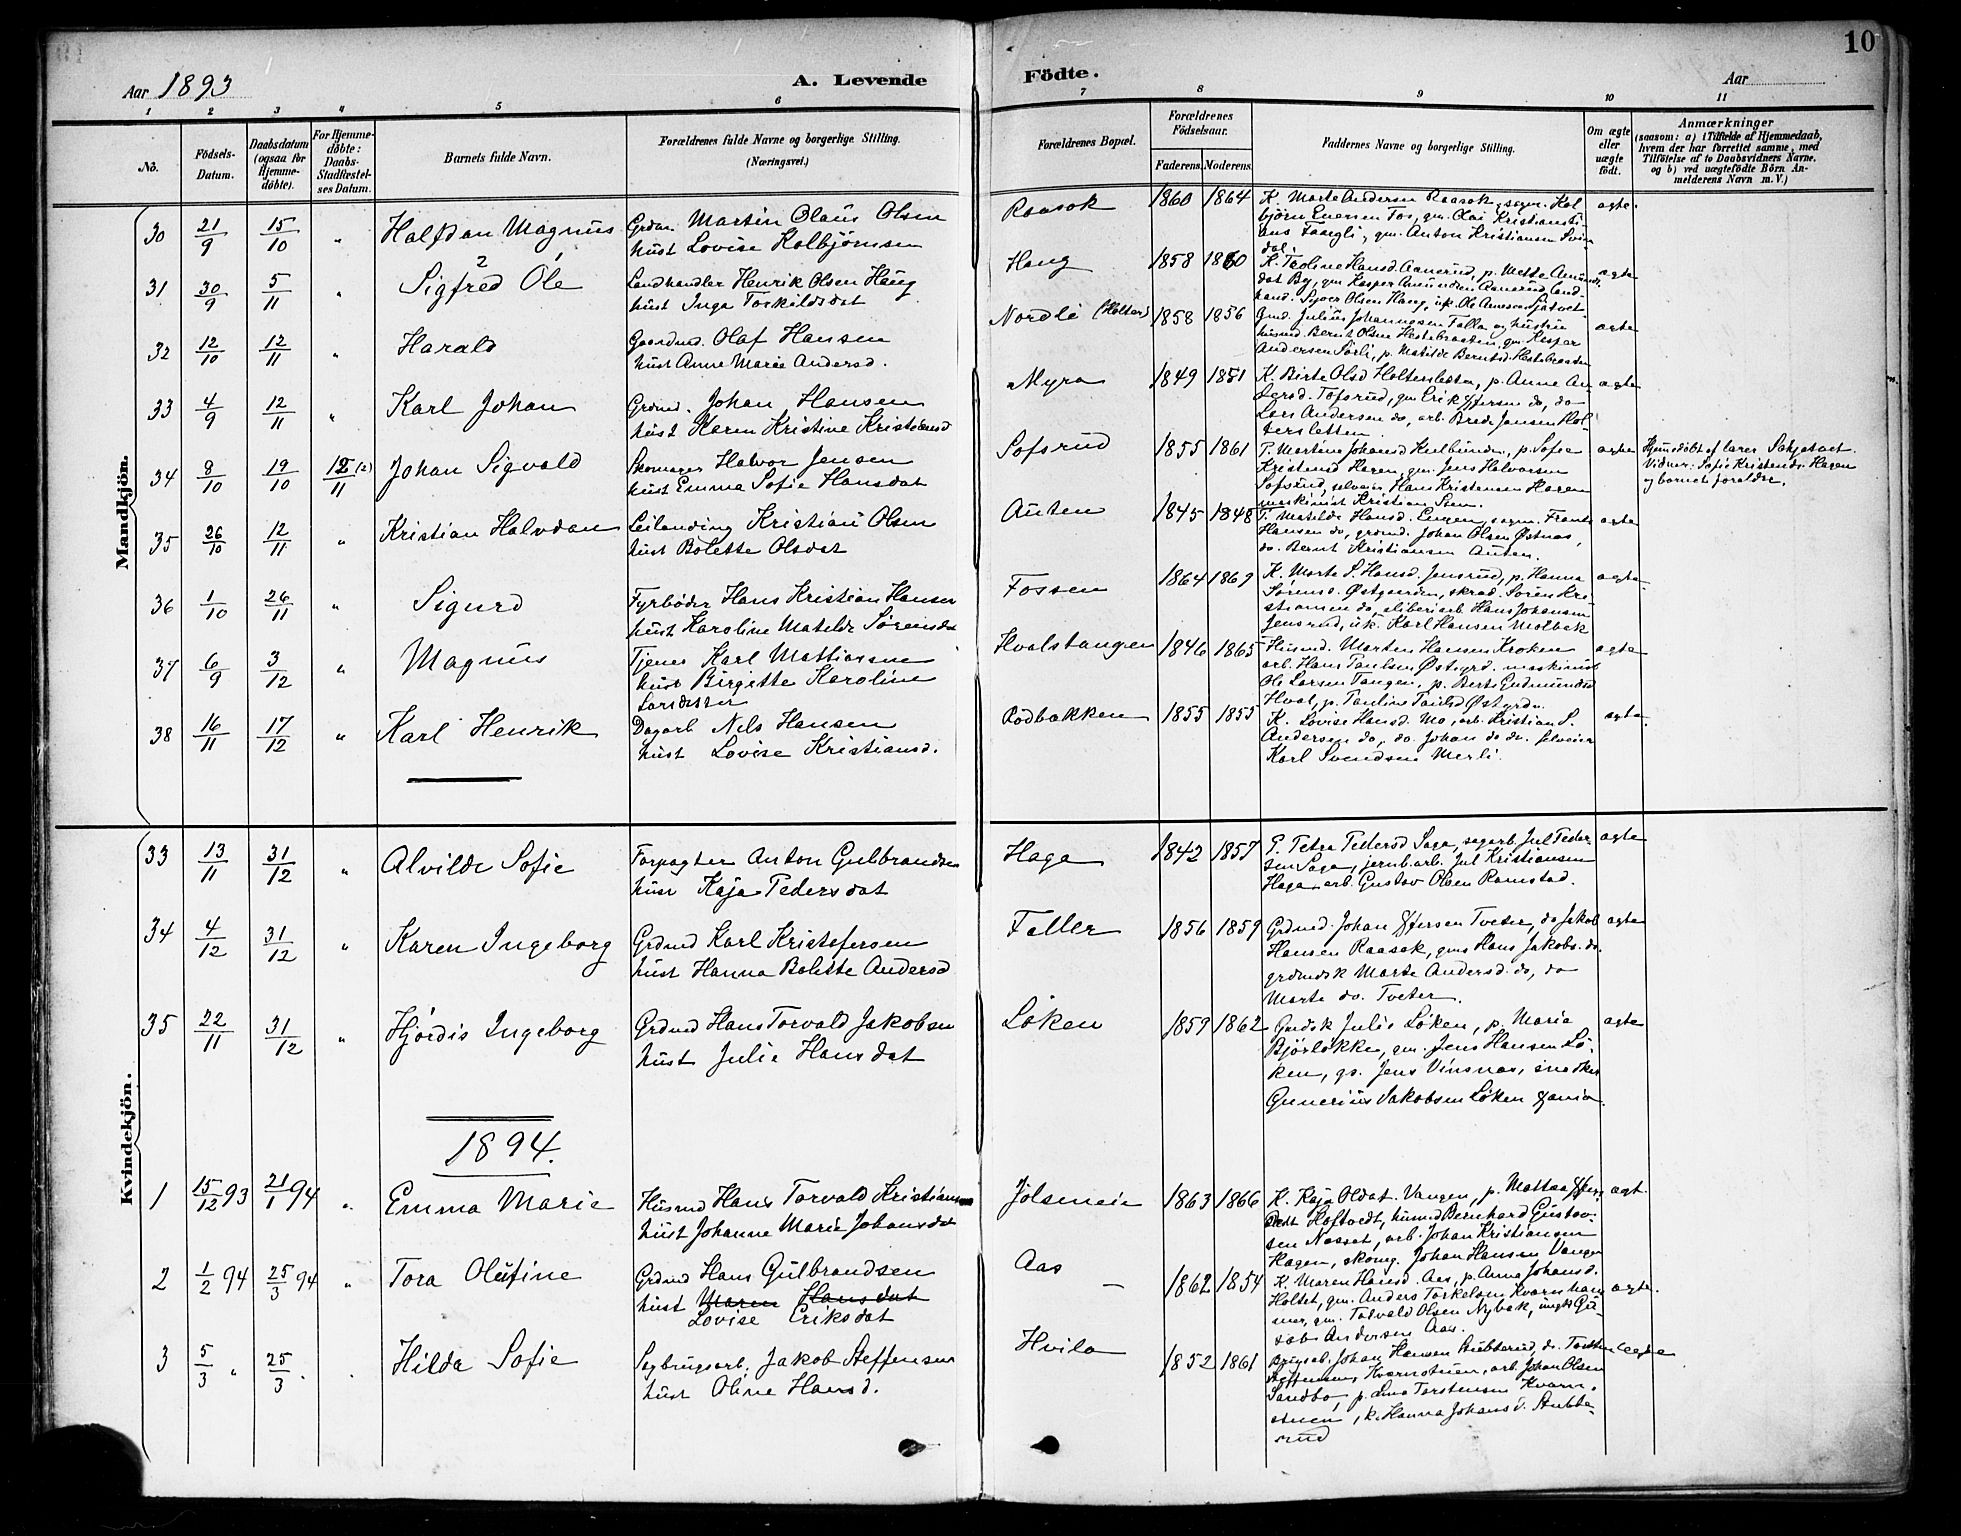 10
Aar 1893
A. Levende
Födte.
Aar
1 2 3 4 5 6 7 8 9 10 11
No.
Födsels-Datum.
Daabsdatum (ogsaa for Hjemmedöbte).
For Hjemmedöbte: Daabs-Stadfæstelses Datum.
Barnets fulde Navn.
Forældrenes fulde Navne og borgerlige Stilling. (Næringsvei.)
Forældrenes Bopæl.
Forældrenes Födselsaar.
Faderens. Moderens.
Faddernes Navne og borgerlige Stilling.
Om ægte eller uægte födt.
Anmærkninger
(saasom: a) i Tilfælde af Hjemmedaab, hvem der har forrettet samme, med Tilföielse af to Daabsvidners Navne, og b) ved uægtefödte Börn Anmelderens Navn m. V.)
Mandkjön.
30 21/9 15/10 " Halfdan Magnus
Grdm. Martin Olaus Olsen
hust Lovise Kolbjørnsen
Raasok 1860 1864
K. Marte Andersen Raasok, sagm. Kol
bjørn Evensen Fos, gm. Olai Kristiansti
ans Fangli, gm. Anton Kristiansen Svin
dal.
ægte
31 30/9 5/11 " Sigfred Ole
2
Landhandler Henrik Olsen Haug
hust Inga Torkildsdat
Haug 1858 1860
K. Teoline Hansd. Aanerud, p. Mette Amund
dat By, gm Kasper Amundsen Aanerud, land
hand. Syver Olsen Haug, uk. Ole Arnesen Sjatvet
ægte
32 12/10 12/11 " Harald
Gaardmd. Olaf Hansen
hust Anne Marie Andersd.
Nordli (Holter) 1858 1856
Gmd. Julius Johannesen Falla og hustru
husmd. Bernt Olsen Hestebraaten, gm Kasper
Andersen Sørli, p. Matilde Berntsd. Hestebraaten
ægte
33 4/9 12/11 " Karl Johan
Grdmd. Johan Hansen
hust Karen Kristine Kristiansd
Myra 1849 1851
K. Birte Olsd Holtersletten, p. Anne An
dersd. Tofsrud, gm Erik Iversen do, do
Lars Andersen do, arb. Brede Jensen Hol
tersletten
ægte
34 8/10 19/10 12/11 (2) Johan Sigvald
Skomager Halvor Jensen
hust Emma Sofie Hansdat
Sofsrud 1855 1861
P. Martine Johansd Kulbunden, p. Sofie
Kristensd Hagen, gm. Jens Halvorsen
Sofsrud, selveier Hans Kristensen Hagen
maskinist Kristian Sten.
ægte
Hjemmedöbt af lærer Sakgstaet.
Vidner: Sofie Kristensd. Hagen
og barnets foraldre.
35 26/10 12/11 " Kristian Halvdan
Leilending Kristian Olsen
hust Bolette Olsdat
Auten 1845 1848
P. Matilde Hansd. Engen, sagm. Frants
Hansen do, grdmd. Johan Olsen Østnæs,
do. Bernt Kristiansen Auten.
ægte
36 1/10 26/11 " Sigurd
Fyrbøder Hans Kristian Hansen
hust Karoline Matilde Sørensdat
Fossen 1864 1869
K. Marte S. Hansd. Jensrud, p. Hanna
Sørensd. Østgaarden, skræd. Søren Kri-
stiansen do, sliberiarb. Hans Johansen
Jensrud, uk. Karl Hansen Molbek
ægte
37 6/9 3/12 " Magnus
Tjener Karl Mattiasen
hust Birgitte Karoline
Larsdatter
Hvalstangen 1846 1865
Husmd. Morten Hansen Kroken
arb. Hans Paulsen Østgrd. maskinist
Ole Larsen Tangen, p. Berte Gudmundsd
Hval, p. Pauline Paulsd Østgrdn.
ægte
38 16/11 17/12 " Karl Henrik
Dagarb Nils Hansen
hust Lovise Kristiansd.
Rodbakken 1855 1855
K. Lovise Hansd. Mo, arb. Kristian S.
Andersen do, do. Johan do do. selveier
Karl Svendsen Merli.
ægte
Kvindekjön.
33 13/11 31/12 " Alvilde Sofie
Forpagter Anton Gulbrandsen
hust Kaja Pedersdat
Haga 1842 1857
P. Petra Pedersd Saga, sagarb. Jul Peder-
sen Saga, jernb.arb. Jul Kristiansen
Haga, arb. Gustav Olsen Ramstad.
ægte
34 4/12 31/12 " Karen Ingeborg
Grdmd Karl Kristofersen
hust Hanna Bolette Andersd
Faller 1856 1859
Grdmd. Johan Iversen Tveter, do Jakob
Hansen Raasok, gm Hans Jakobs. do.
grdmdsk Marte Andersd. do, do
Marte do. Tveter.
ægte
35 22/11 31/12 " Hjördis Ingeborg
Grdmd Hans Torvald Jakobsen
hust Julie Hansdat
Løken 1859 1862
Gmdsk Julie Løken, p. Maria
Bjørløkke, gm. Jens Hansen Lø-
ken, gs. Jens Vinsnæs, snedker
Gunerius Jakobsen Løken Xania.
ægte
1894.
1 15/12 93 21/1 94 " Emma Marie
Husmd Hans Torvald Kristiansen
hust Johanne Marie Johansdat
Jølsmeie 1863 1866
K. Kaja Oldat. Vangen, p. Mattea Iver
sdt Høftvedt, husmd Bernhard Gustav-
sen Næsset, arb. Johan Kristiansen
Hagen, skomg. Johan Hansen Vangen
ægt.
2 1/2 94 25/3 94 " Tora Olufine
Grdmd Hans Gulbrandsen
hust Maren Hansdat
Lovise Eriksdat
Aas — 1862 1854
K. Maren Hansd. Aas, p. Anna Johansd.
Holtet, gm. Anders Torkelsen Kvernham
mer, gm. Torvald Olsen Nybak, ungk Gu-
stav Andersen Aas.
ægte.
3 5/3 " 25/3 . Hilda Sofie
Sagbrugsarb. Jakob Steffensen
hust Oline Hansd.
Hvila 1852 1861
Brugseb. Johan Hansen Stubberud, do. Torsten
Steffensen Kvernstuen, arb. Johan Olsen
Sandbo, p. Lina Torstensen Kvern-
stuen, k. Hanna Johansd. Stubbe-
rud
ægte